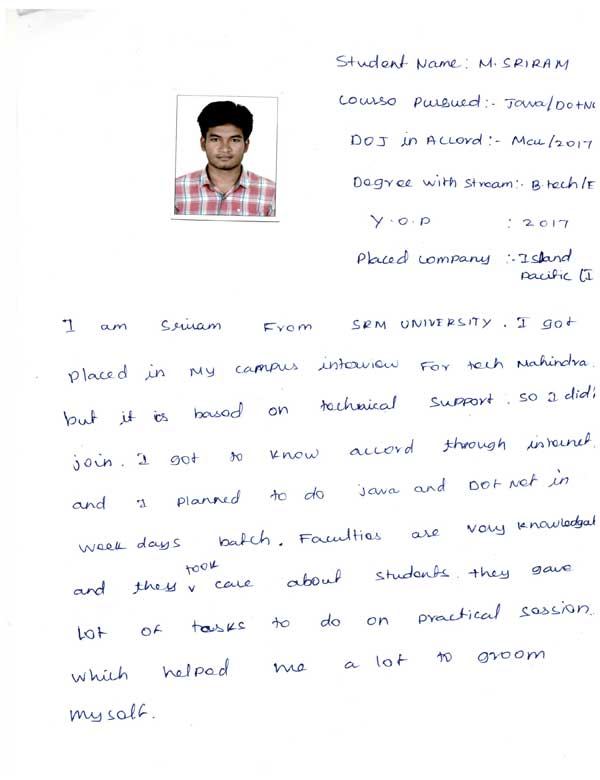 Student Name: M. SRIRAM
Course Pursued:- Java/DOTNE
DOJ in Accord:- May/2017
Degree with Stream:- B.tech/E
Y.O.P : 2017
Placed company :- Island
Pacific (I
I am Sriram From SRM UNIVERSITY. I got
placed in My campus interview For tech Mahindra.
but it is based on technical support. so I did
join. I got to know accord through internet.
and I planned to do java and Dot Net in
week days batch. Faculties are very knowledgab
and they took care about students. they gave
Lot of tasks to do on practical session.
which helped me a lot to groom
myself.